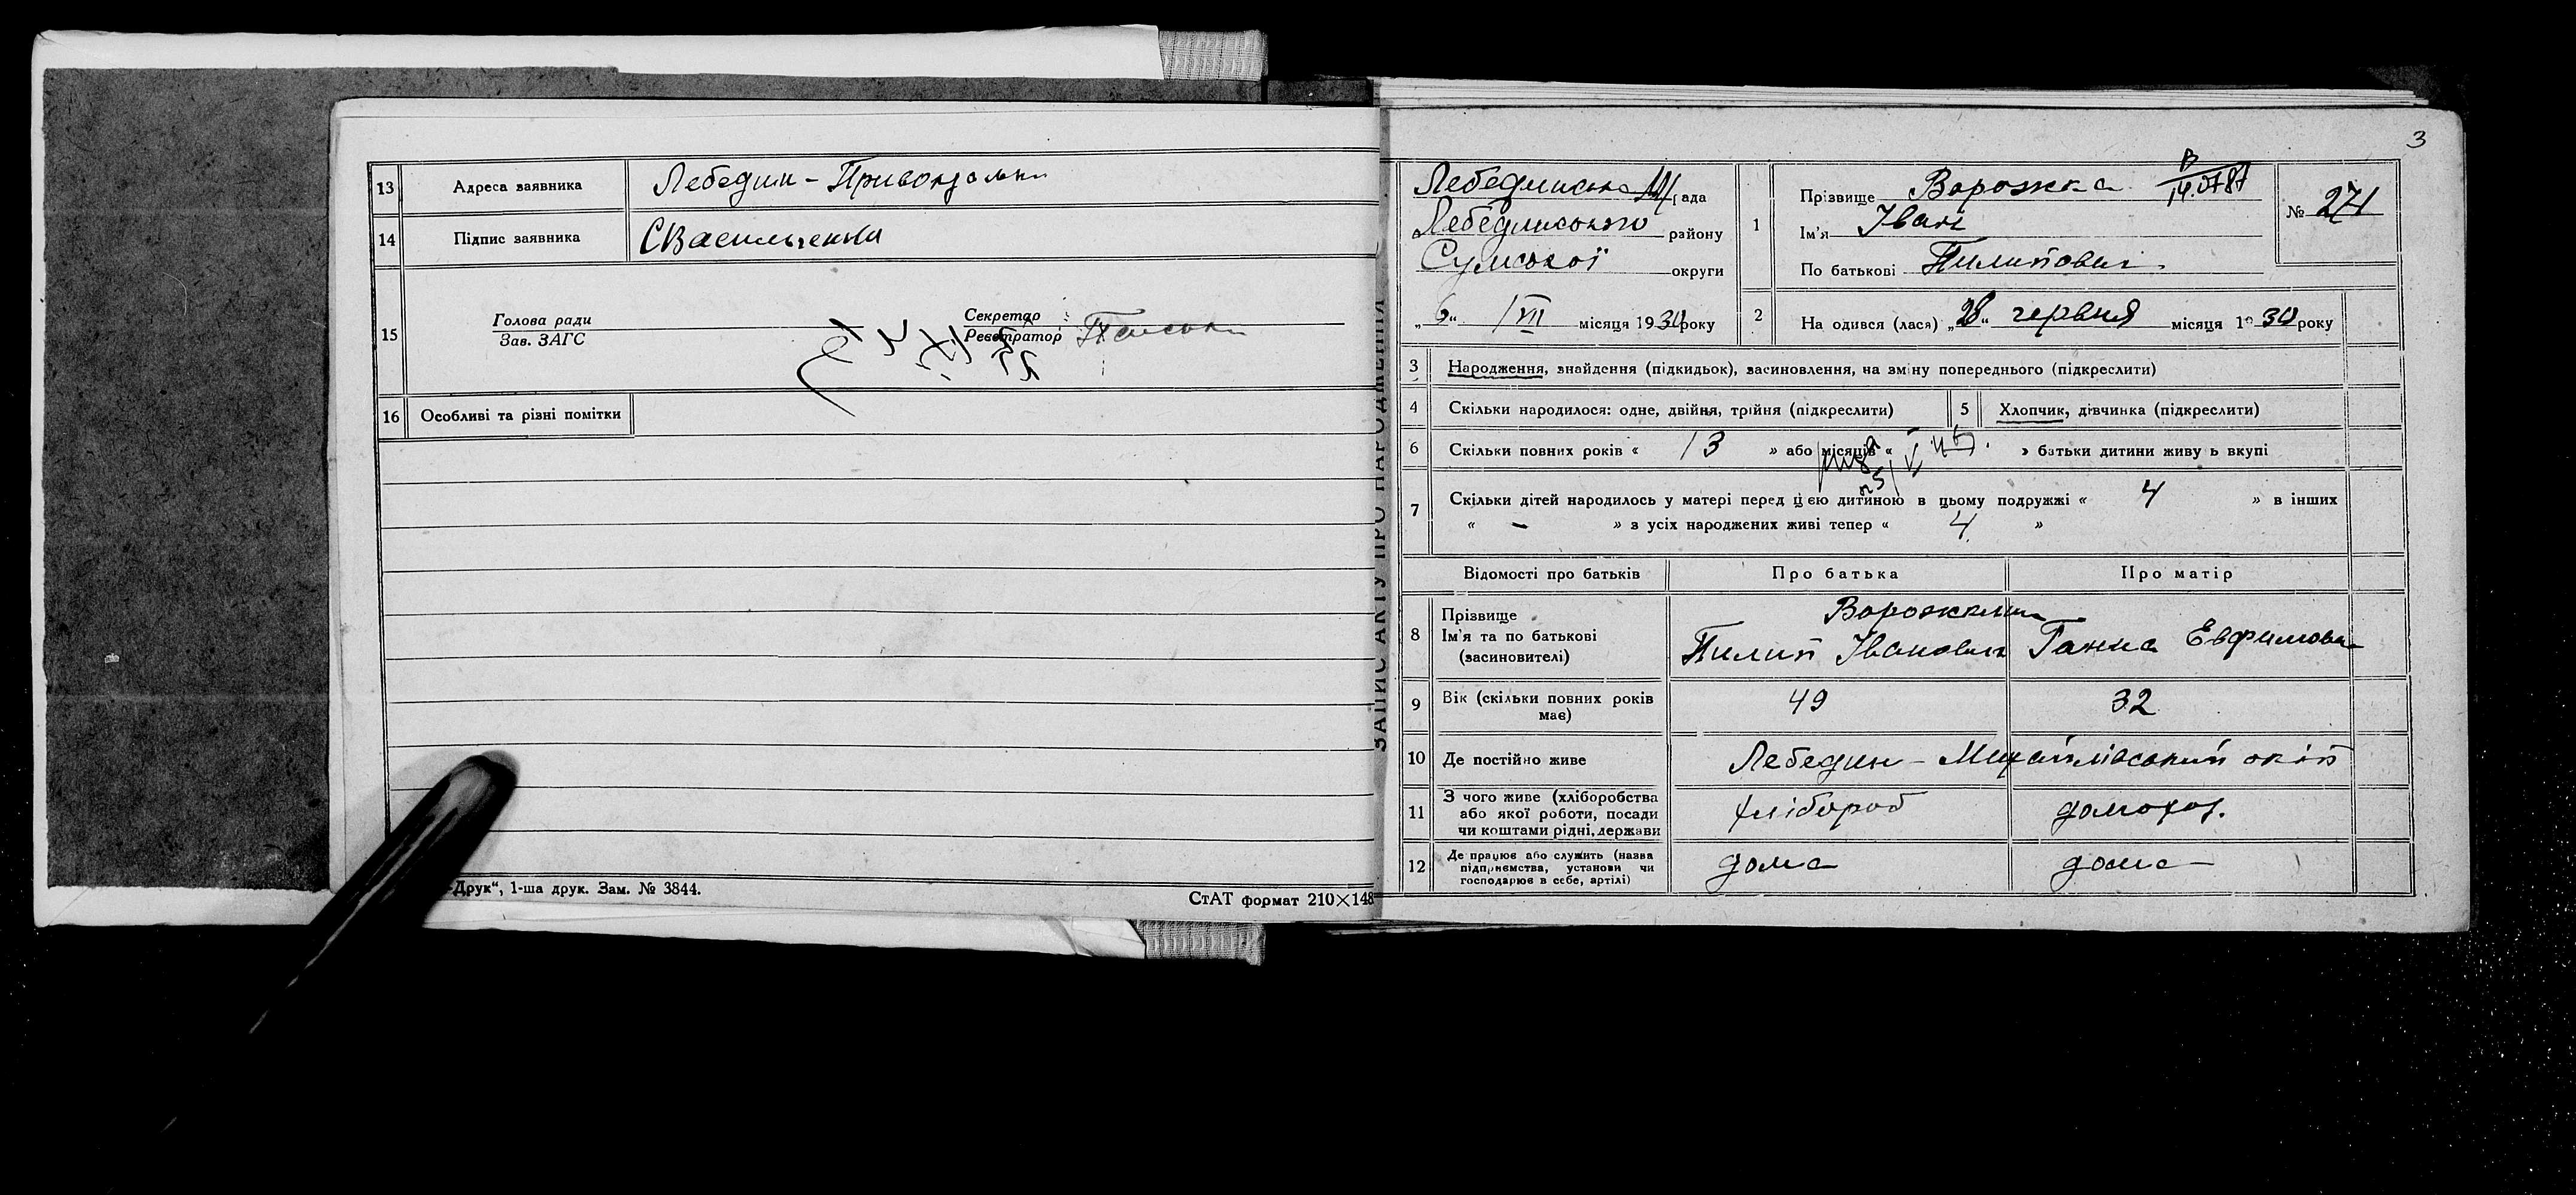 13 Адреса заявника Лебедин - Привокзальн
14 Підпис заявника СВасильченко
15 Голова ради
Зав. ЗАГС
Секретар
Реєстратор
16 Особливі та різні помітки
Друк“, 1-ша друк. Зам. № 3844.
СтАТ формат 210×148
ЗАПИС АКТУ ПРО НАРОДЖЕННЯ
3
Лебединська рада
Лебединського району
Сумської округи
„6“ VII місяця 1930 року
1 Прізвище Ворожка
14.07.87
Ім'я Іван
По батькові Пилипович
№ 271
2 На одився (лася) „28“ червня місяця 1930 року
3 Народження, знайдення (підкидьок), засиновлення, на зміну попереднього (підкреслити)
4 Скільки народилося: одне, двійня, трійня (підкреслити) 5 Хлопчик, дівчинка (підкреслити)
6 Скільки повних років « 13 » або місяців « » батьки дитини живу ь вкупі
7 Скільки дітей народилось у матері перед цією дитиною в цьому подружжі « 4 » в інших
« – » з усіх народжених живі тепер « 4 »
Відомості про батьків Про батька Про матір
8 Прізвище
Ім'я та по батькові
(засиновителі)
Ворожки
Пилип Іванович Ганна Евфимовна
9 Вік (скільки повних років має) 49 32
10 Де постійно живе Лебедин - Михайлівський окіп
11 З чого живе (хліборобства
або якої роботи, посади
чи коштами рідні, держави
хлібороб домогос.
12 Де працює або служить (назва
підприємства, установи чи
господарює в себе, артілі)
дома дома